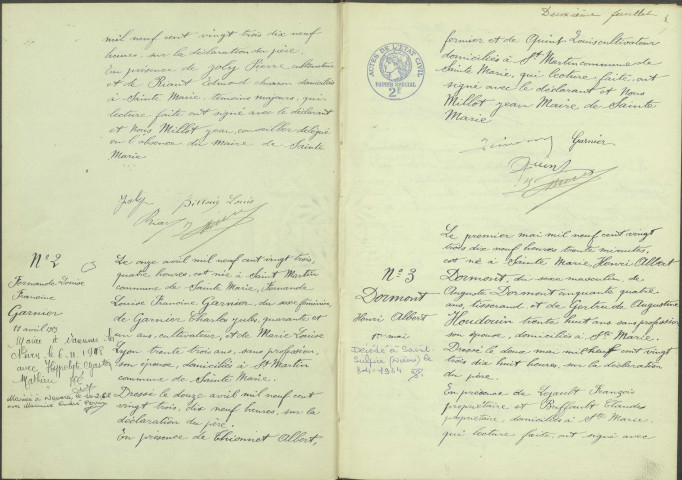 mil neuf cent vingt trois dix neuf
heures, sur la déclaration du père.
En présence de Joly Pierre cultivateur
et de Riant Edmond charron domiciliés
à Sainte Marie, témoins majeurs, qui
lecture faite ont signé avec le déclarant
et Nous Millot Jean, conseiller délégué
en l'absence du maire de Sainte
Marie
Joly Louis
N° 2
Fernande Louise
Francine
Garnier
11 avril
Mariée à
Nevers le 6.11.1948
avec Hippolyte
Mathieu
Le onze avril mil neuf cent vingt trois,
quatre heures, est née à Saint Martin
commune de Sainte Marie, Fernande
Louise Francine Garnier, du sexe féminin,
de Garnier Charles Jules, quarante et
un ans, cultivateur, et de Marie Louise
Lyon trente trois ans, sans profession,
son épouse, domiciliés à St Martin
commune de Sainte Marie.
Dressé le douze avril mil neuf cent
vingt trois, dix neuf heures, sur la
déclaration du père.
En présence de Thionnet Albert,
Deuxième feuillet
ACTES DE L'ÉTAT CIVIL
PAPIER SPÉCIAL
2F
fermier et de Quint Louis cultivateur
domiciliés à St Martin commune de
Sainte Marie, qui lecture faite, ont
signé avec le déclarant et Nous
Millot Jean Maire de Sainte
Marie
Garnier
Quint
N° 3
Dormont
Henri Albert
1er mai
Décédé à Saint
Sulpice (Nièvre) le
1984
Le premier mai mil neuf cent vingt
trois dix neuf heures trente minutes,
est né à Sainte Marie, Henri Albert
Dormont, du sexe masculin, de
Auguste Dormont cinquante quatre
ans, tisserand, et de Gertrude Augustine
Houdouin trente huit ans sans profession
son épouse, domiciliés à Ste Marie.
Dressé le deux mai mil neuf cent vingt
trois dix huit heures, sur la déclaration
du père.
En présence de Legault François
propriétaire et Buffault Claude
propriétaire, domiciliés à Ste Marie.
qui lecture faite, ont signé avec